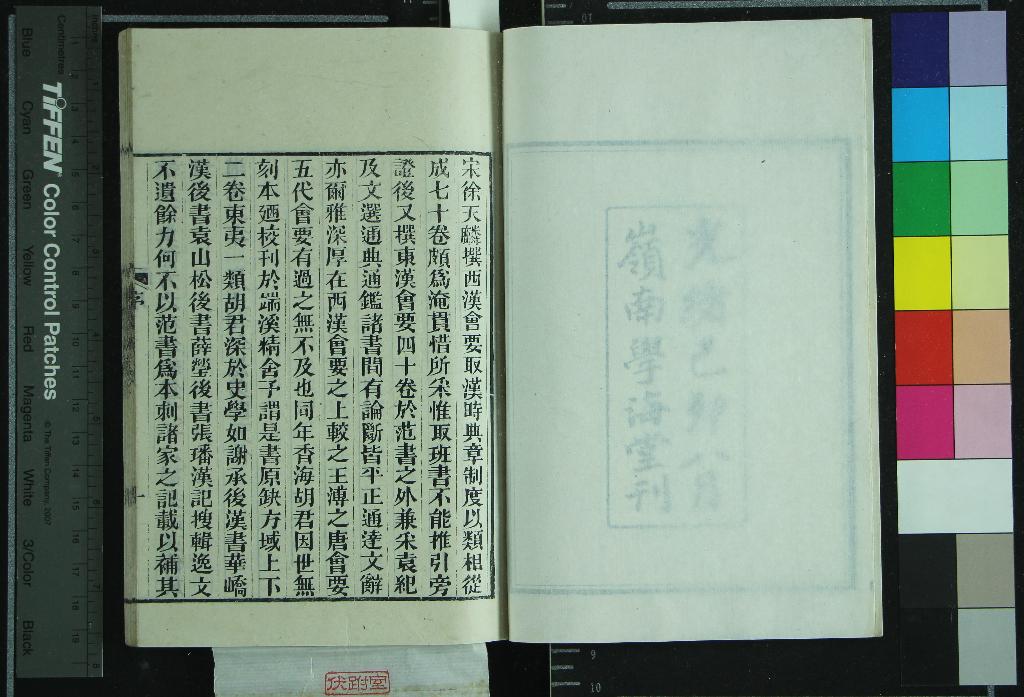 光緒己卯八月
嶺南學海堂刊
宋徐天麟撰西漢會要取漢時典章制度以類相從
成七十卷頗爲淹貫惜所采惟取班書不能推引旁
證後又撰東漢會要四十卷於范書之外兼采袁紀
及文選通典通鑑諸書間有論斷皆平正通達文辭
亦爾雅深厚在西漢會要之上較之王溥之唐會要
五代會要有過之無不及也同年香海胡君因世無
刻本廼校刊於端溪精舍予謂是書原缺方域上下
二卷東夷一類胡君深於史學如謝承後漢書華嶠
漢後書袁山松後書薛瑩後書張璠漢記搜輯逸文
不遺餘力何不以范書爲本刺諸家之記載以補其
序
一
伏跗室
Centimetres
Inches
TIFFEN Color Control Patches
© The Tiffen Company, 2007
Blue Cyan Green Yellow Red Magenta White 3/Color Black
9
10